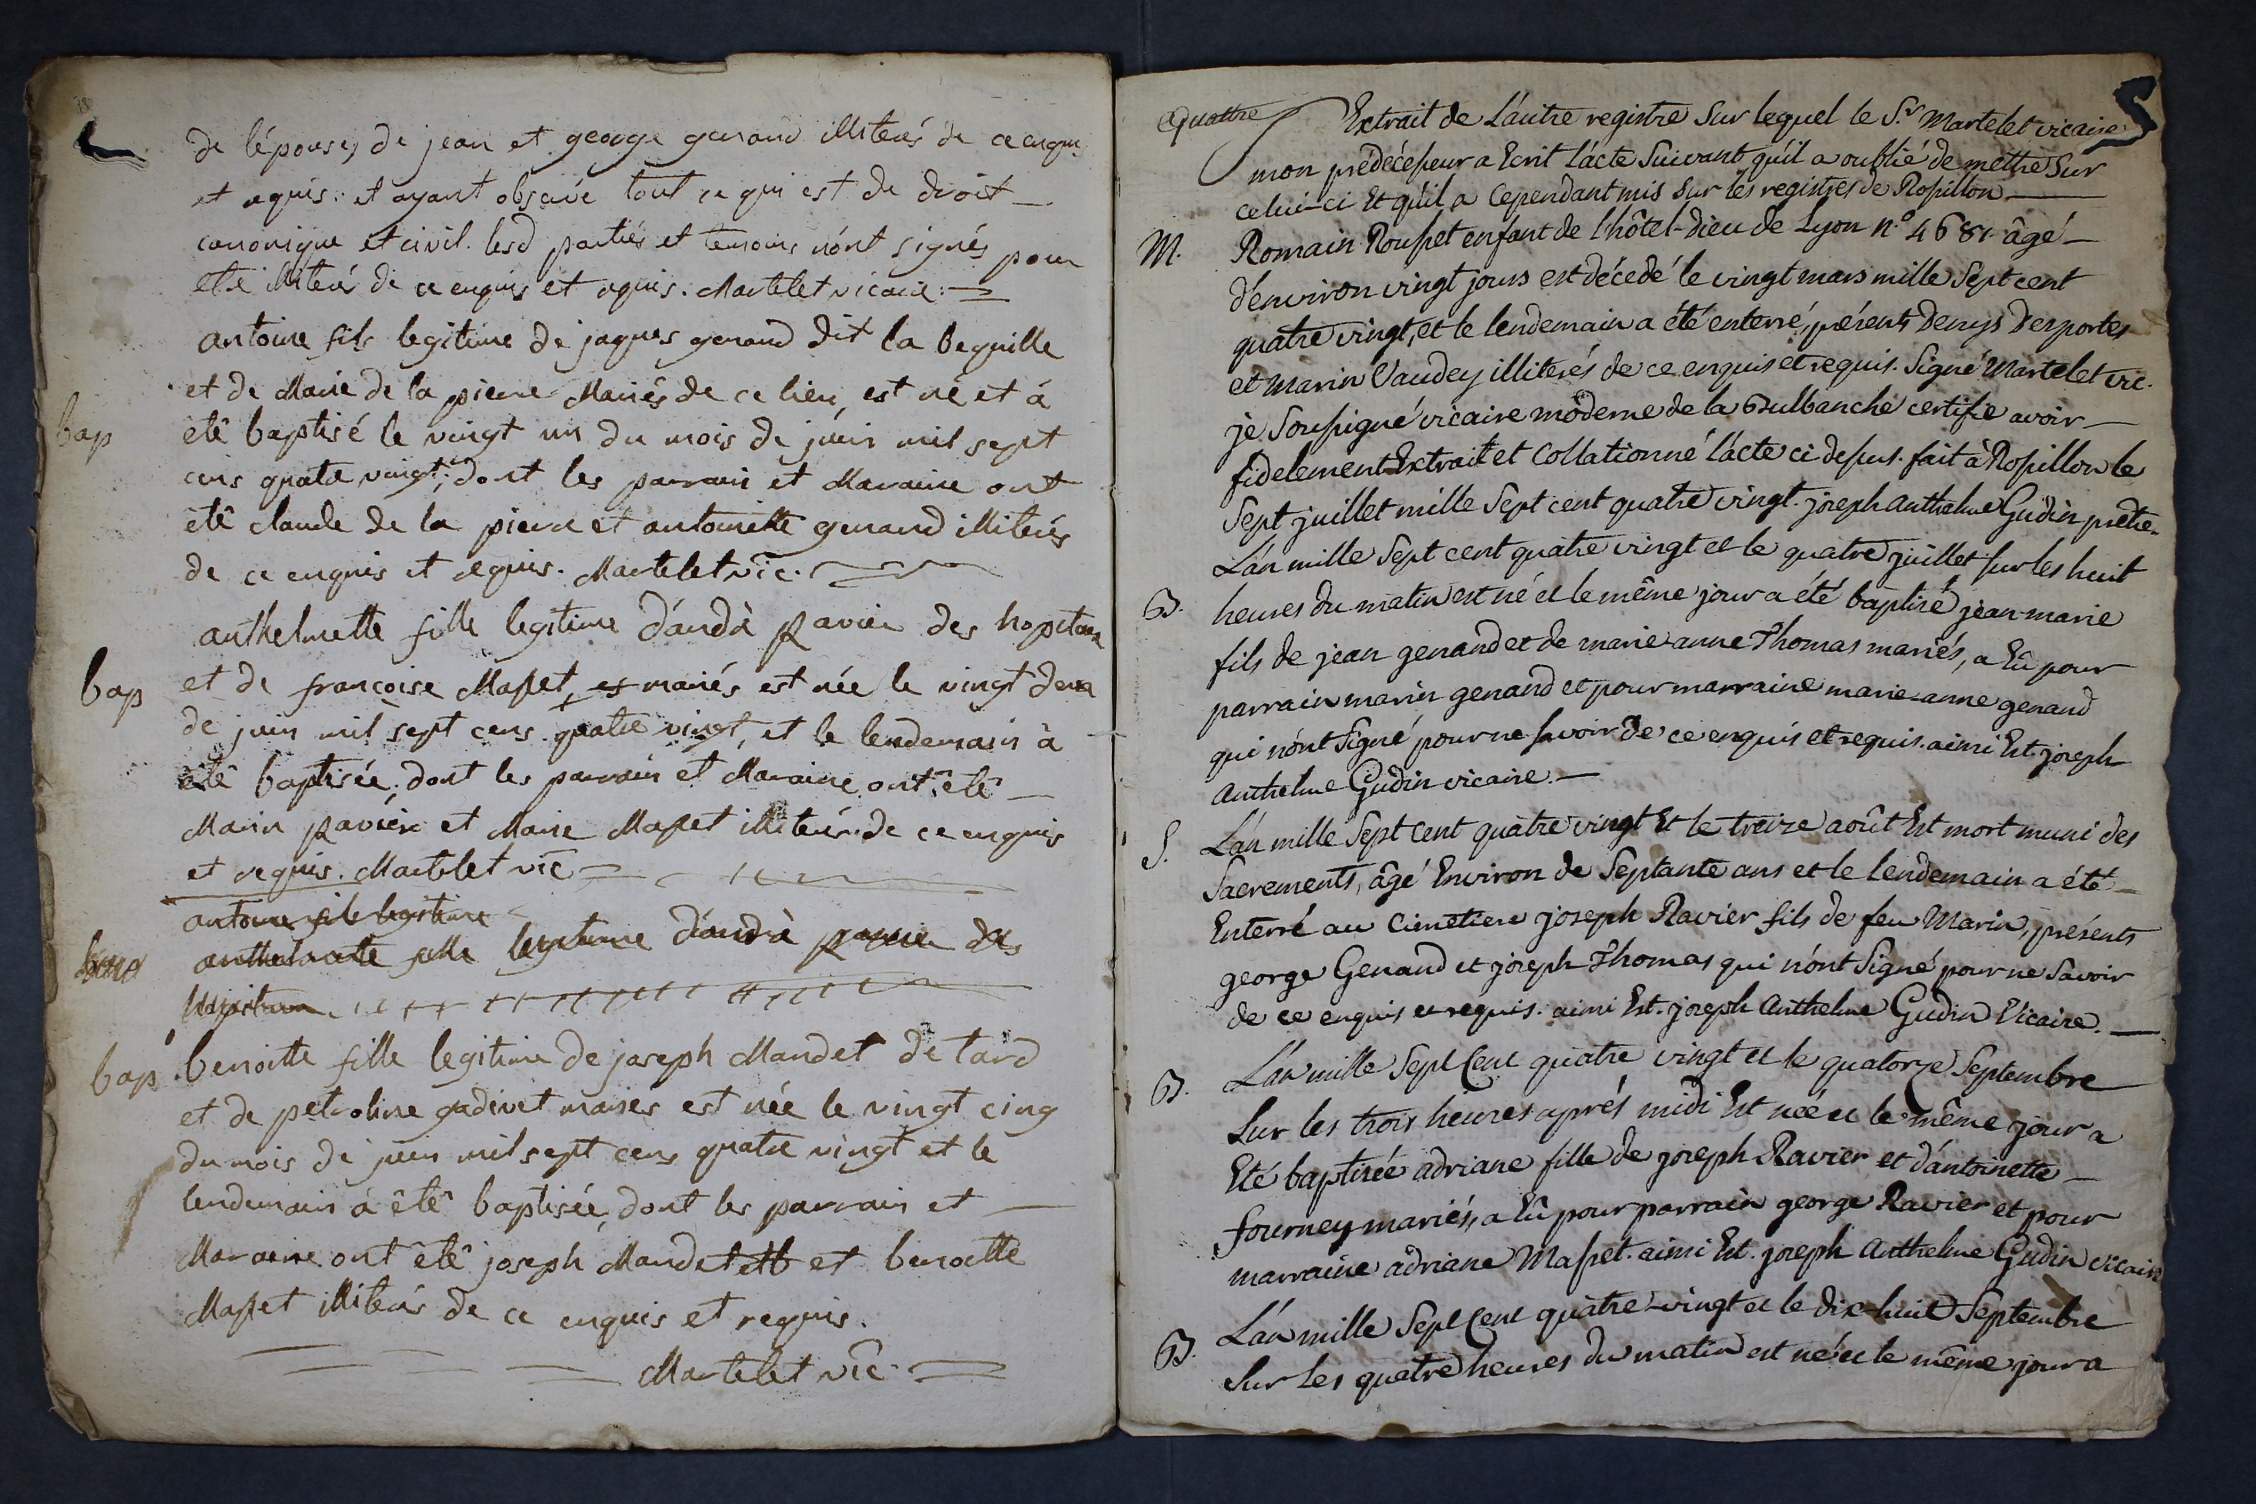 de l'épouse, de jean et george genand illiterés de ce enquis
et requis: et ayant observé tout ce qui est de droit
canonique et civil. lesd parties et temoins n'ont signés pour
etre illiterés de ce enquis et requis. Martelet vicaire.
antoine fils legitime de jaques genand dit la beguille
et de Marie de la pierre Mariés de ce lieu, est né et à
bap
eté baptisé le vingt un du mois de juin mil sept
cens quatre vingt; dont les parrain et Maraine ont
eté claude de la pierre et antoinette genand illiterés
de ce enquis et requis. Martelet vic.
anthelmette fille legitime d'andrè ravier des hopitaux
bap
et de françoise Masset, et mariés est née le vingt deux
de juin mil sept cens quatre vingt, et le lendemain à
eté baptisée; dont les parrain et Maraine ont eté
Marin ravier et Marie Masset illiterés de ce enquis
et requis. Martelet vic
antoine fils legitime
anthelmette fille legitime d'andrè ravier des
hopitaux
bap
benoitte fille legitime de joseph Mandet de tard
et de petroline gadivet mariés est née le vingt cinq
du mois de juin mil sept cens quatre vingt et le
lendemain à êtê baptisée, dont les parrain et
Maraine ont êtê joseph Mandet et benoitte
Masset illiterés de ce enquis et requis.
Martelet vic
quattre
5
Extrait de L'autre registre sur lequel le Sr. Martelet vicaire
mon prédécesseur a Ecrit l'acte Suivant qu'il a oublié de mettre Sur
celui-ci Et qu'il a cependant mis sur les registres de Rossillon
M.
Romain Rousset enfant de l'hôtel-dieu de Lyon n.° 4681. âgé
d'environ vingt jours est décedé le vingt mars mille Sept cent
quatre vingt, et le lendemain a été enterré, présents denys Desportes
et Marin Vaudey illiterés de ce enquis et requis. Signé Martelet vic.
je Soussigné vicaire moderne de la Bulbanche certifie avoir
fidelement Extrait et Collationné l'acte ci dessus. fait à Rossillon le
Sept juillet mille Sept cent quatre vingt. joseph anthelme Gudin prêtre.
L'an mille Sept cent quatre vingt et le quatre juillet sur les huit
B.
heures du matin est né et le même jour a été baptisé jean-marie
fils de jean genand et de marie-anne Thomas mariés, a Eû pour
parrain marin genand et pour marraine marie-anne genand
qui n'ont Signé pour ne savoir de ce enquis et requis. ainsi Est. joseph
Anthelme Gudin vicaire.
S.
L'an mille Sept Cent quatre vingt Et le treize août Est mort muni des
Sacrements, âgé Environ de Septante ans et le lendemain a été
Enterré au Cimetiere joseph Ravier fils de feu Marin, présents
george Genand et joseph Thomas qui n'ont Signé pour ne Savoir
de ce enquis et requis. ainsi Est. joseph Anthelme Gudin Vicaire.
B.
L'an mille Sept Cent quatre vingt et le quatorze Septembre
Sur les trois heures après midi Est née et le même jour a
Eté baptisée adriane fille de joseph Ravier et d'antoinette
fourney mariés, a Eû pour parrain george Ravier et pour
marraine adriane Masset. ainsi Est. joseph Anthelme Gudin vicaire
B.
L'an mille Sept Cent quatre-vingt et le dix-huit Septembre
Sur Les quatre heures du matin est né et le même jour a